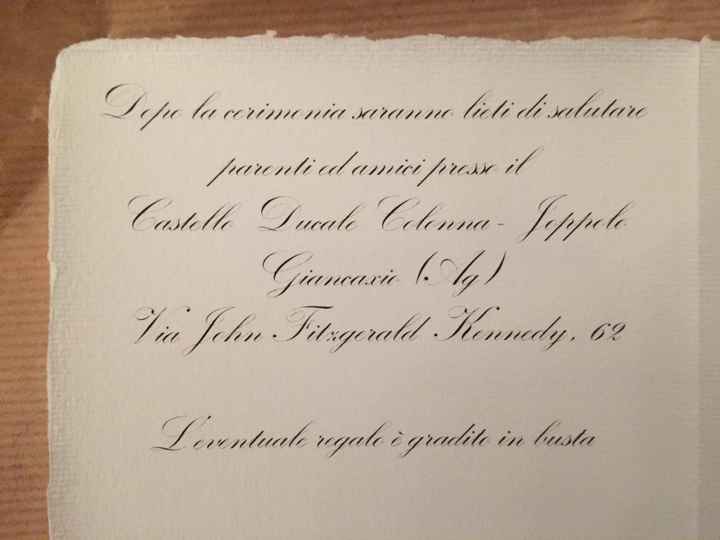 Dopo la cerimonia saranno lieti di salutare
parenti ed amici presso il
Castello Ducale Colonna - Joppolo
Giancaxio (Ag)
Via John Fitzgerald Kennedy, 62
L'eventuale regalo è gradito in busta